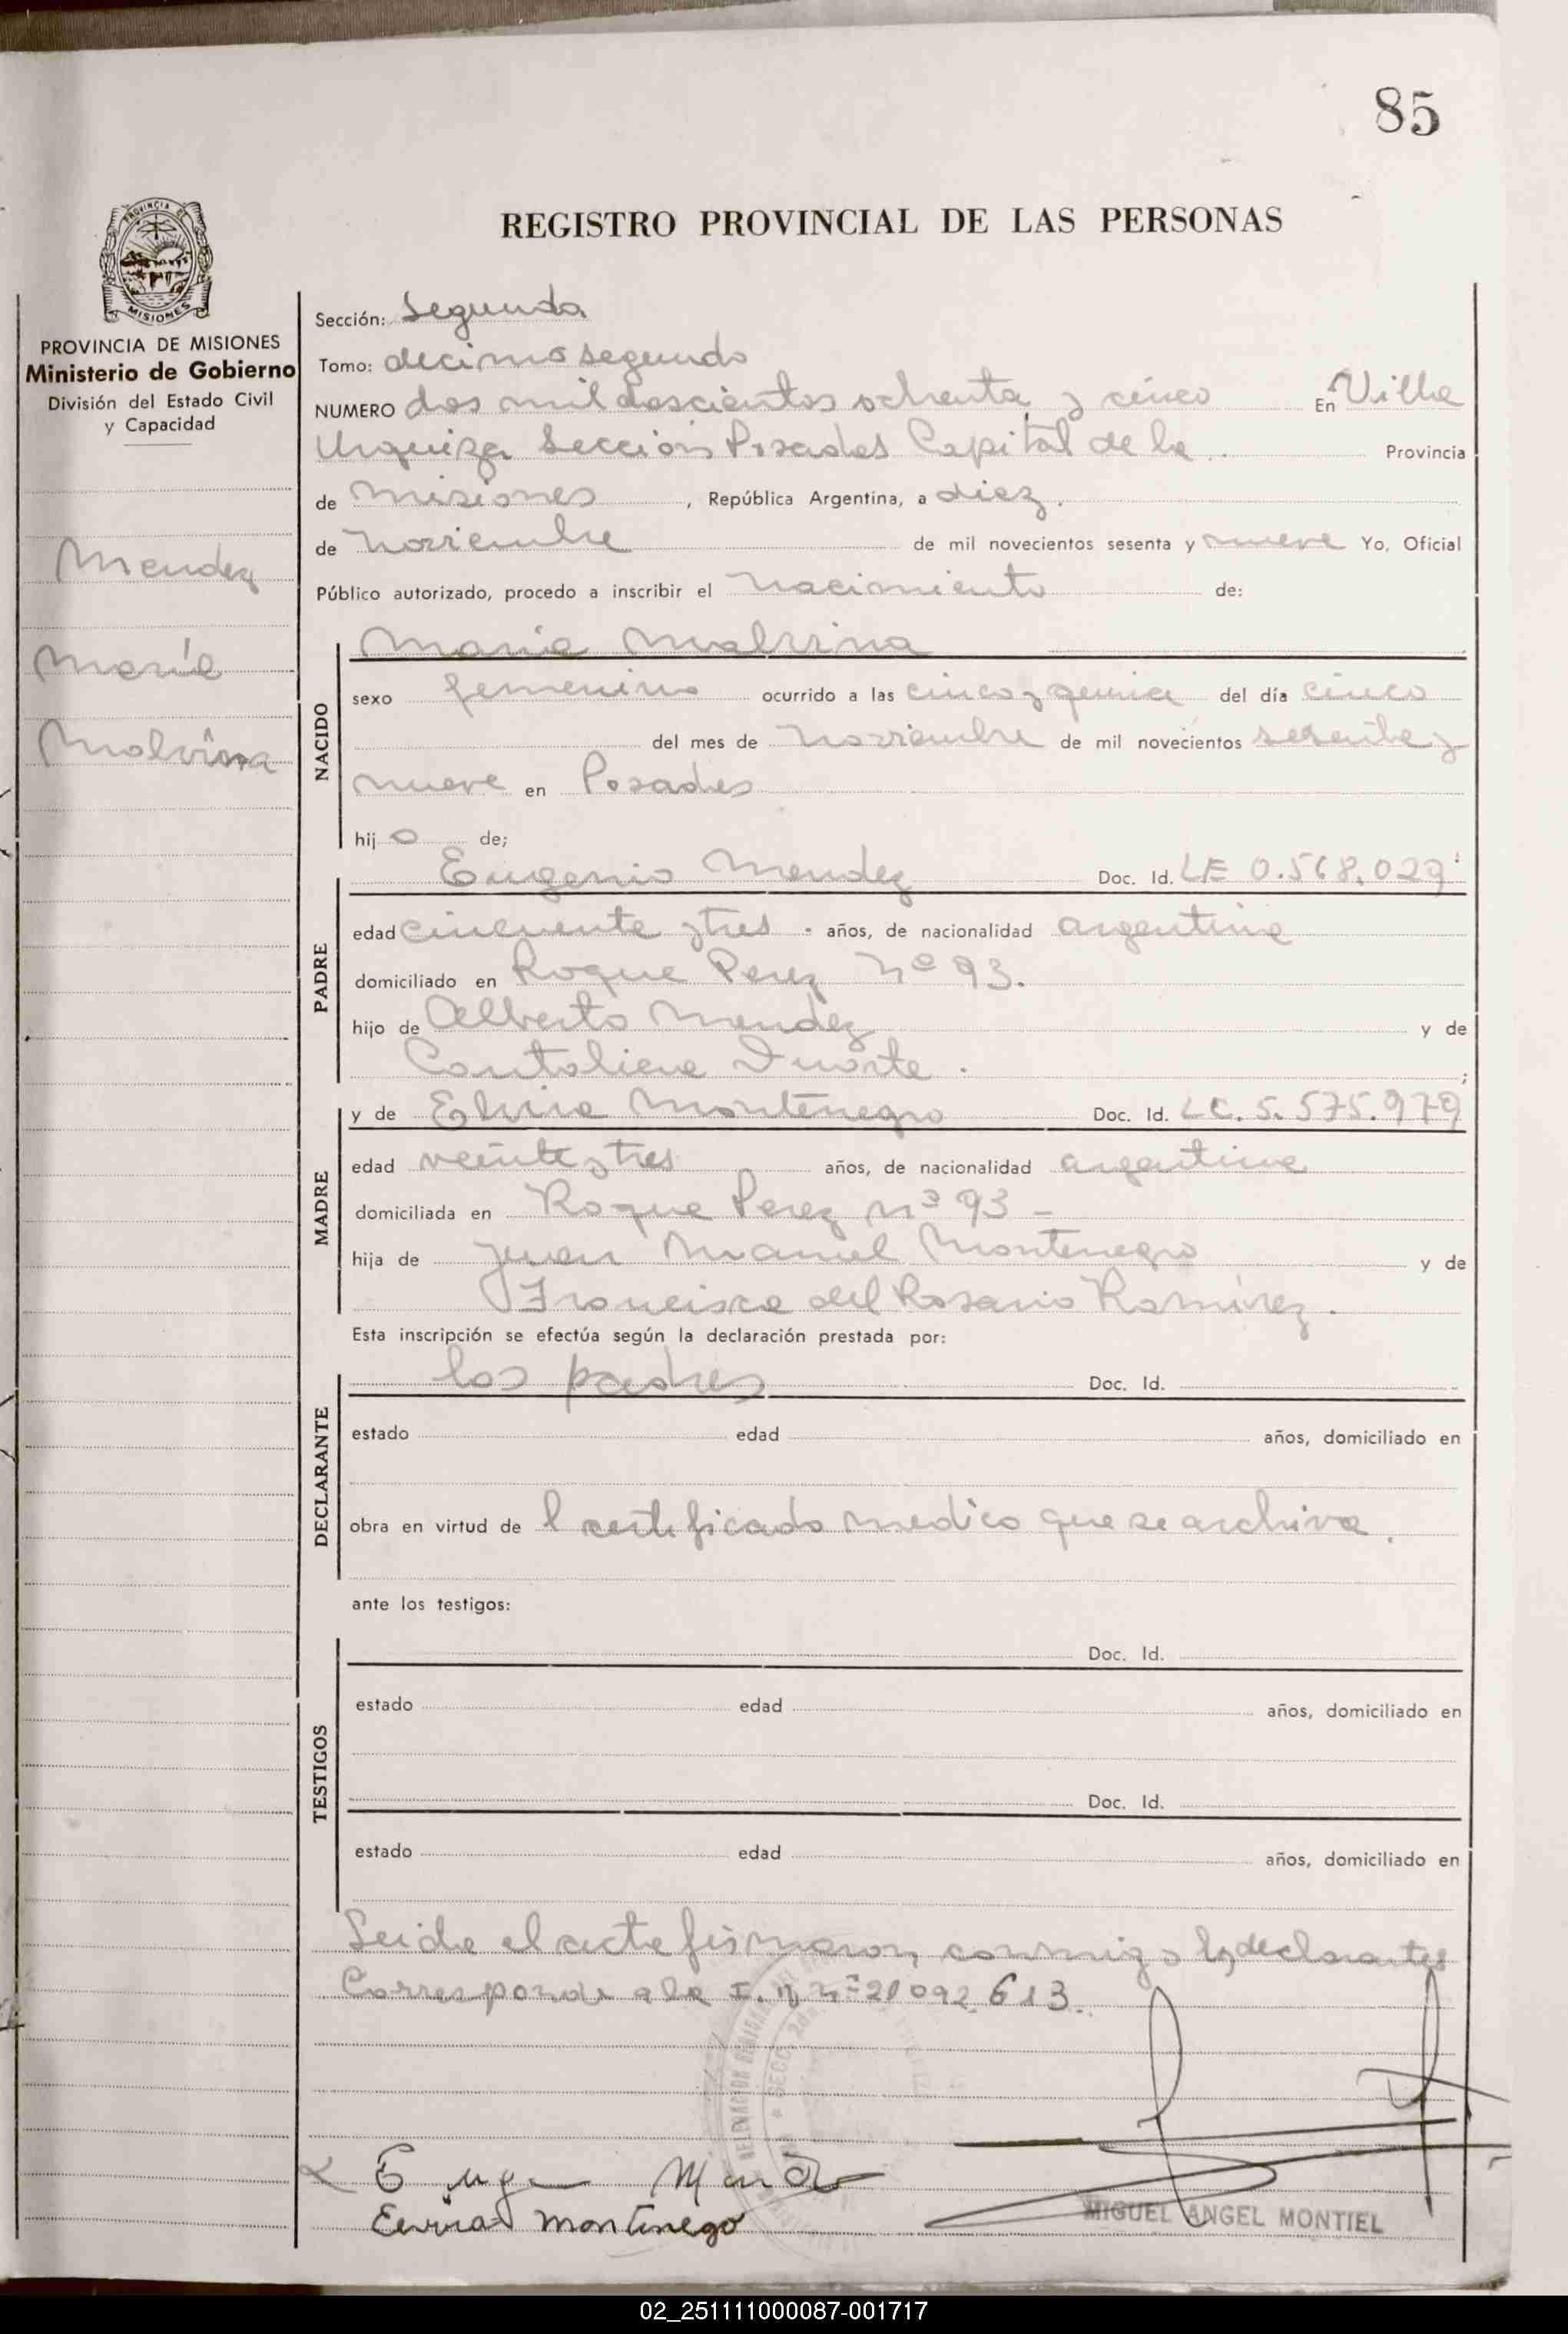 85
REGISTRO PROVINCIAL DE LAS PERSONAS
PROVINCIA DE
MISIONES
PROVINCIA DE MISIONES
Ministerio de Gobierno
División del Estado Civil
y Capacidad
Mendez
María
Malvina
Sección: Segunda
Tomo: decimo segundo
NUMERO dos mil doscientos ochenta y cinco En Villa
Urquiza Sección Posadas Capital de la Provincia
de Misiones, República Argentina, a diez.
de noviembre de mil novecientos sesenta y nueve Yo, Oficial
Público autorizado, procedo a inscribir el nacimiento de:
NACIDO
Maria Malvina
sexo femenino ocurrido a las cinco y quince del día cinco
del mes de noviembre de mil novecientos sesenta y
nueve en Posadas
hij a de;
PADRE
Eugenio Mendez Doc. Id. LE 0.568.029
edad cincuenta y tres. años, de nacionalidad argentina
domiciliado en Roque Perez nº 93.
hijo de Alberto Mendez y de
Cantalicia Duarte.;
MADRE
y de Elvira Montenegro Doc. Id. LC. 5.575.979
edad veinte y tres años, de nacionalidad argentina
domiciliada en Roque Perez nº 93 -
hija de Juan Manuel Montenegro y de
Francisca del Rosario Ramirez.
Esta inscripción se efectúa según la declaración prestada por:
DECLARANTE
los padres Doc. Id.
estado edad años, domiciliado en
obra en virtud de l certificado medico que se archiva.
ante los testigos:
TESTIGOS
Doc. Id.
estado edad años, domiciliado en
Doc. Id.
estado edad años, domiciliado en
Leida el acta firmaron, conmigo los declarantes
Corresponde a la I. n nº 21 092.613.
Montenego
MIGUEL ANGEL MONTIEL
02_251111000087-001717